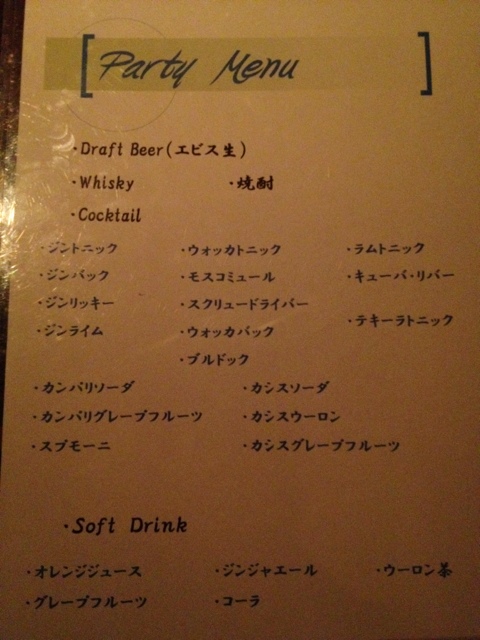 Party Menu
・Draft Beer(エビス生)
・Whisky ・焼酎
・Cocktail
・ジントニック ・ウォッカトニック ・ラムトニック
・ジンバック ・モスコミュール ・キューバ・リバー
・ジンリッキー ・スクリュードライバー
・テキーラトニック
・ジンライム ・ウォッカバック
・ブルドック
・カンパリソーダ ・カシスソーダ
・カンパリグレープフルーツ ・カシスウーロン
・スプモーニ ・カシスグレープフルーツ
・Soft Drink
・オレンジジュース ・ジンジャエール ・ウーロン茶
・グレープフルーツ ・コーラ